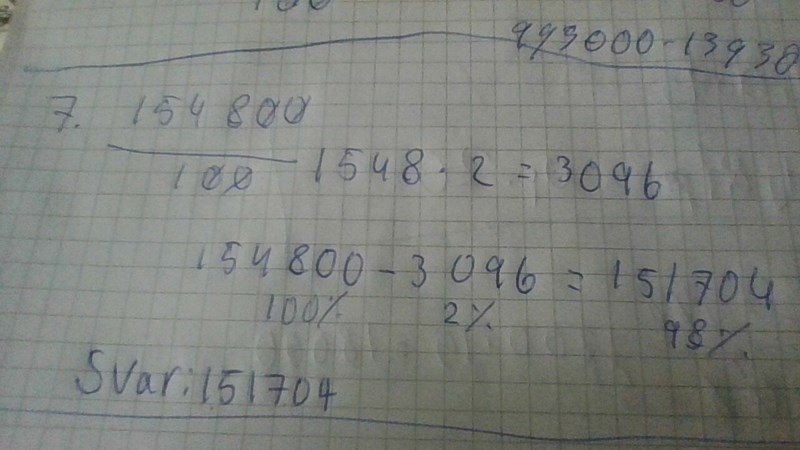 100
993000-13930
7. 154 800
100 1548 · 2 = 3096
154 800 - 3 096 = 151704
100% 2% 98%
Svar: 151704